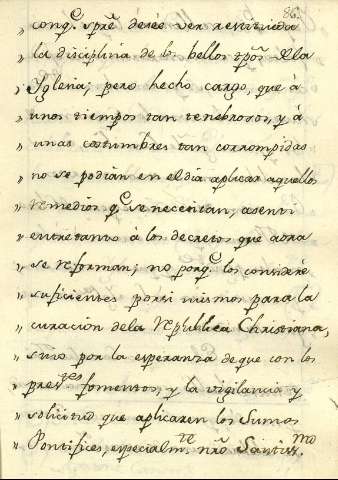 86.
„ conq.e spre desee ver restituida
„ la disciplina de los bellos tpos. de la
„ Yglesia; pero hecho cargo, que à
„ unos tiempos tan tenebrosos, y à
„ unas costumbres tan corrompidas
„ no se podian en el dia aplicar aquellos
„ remedios q.e se necesitan, asenti
„ entretanto à los decretos que aora
„ se reforman; no porq.e los considère
„ suficientes por si mismos para la
„ curacion dela Republica Christiana,
„ sino por la esperanza de que con los
„ pres.tes fomentos, y la vigilancia y
„ solicitud que aplicaren los Sumos
„ Pontifices, especialm.te nrõ Santiss.mo